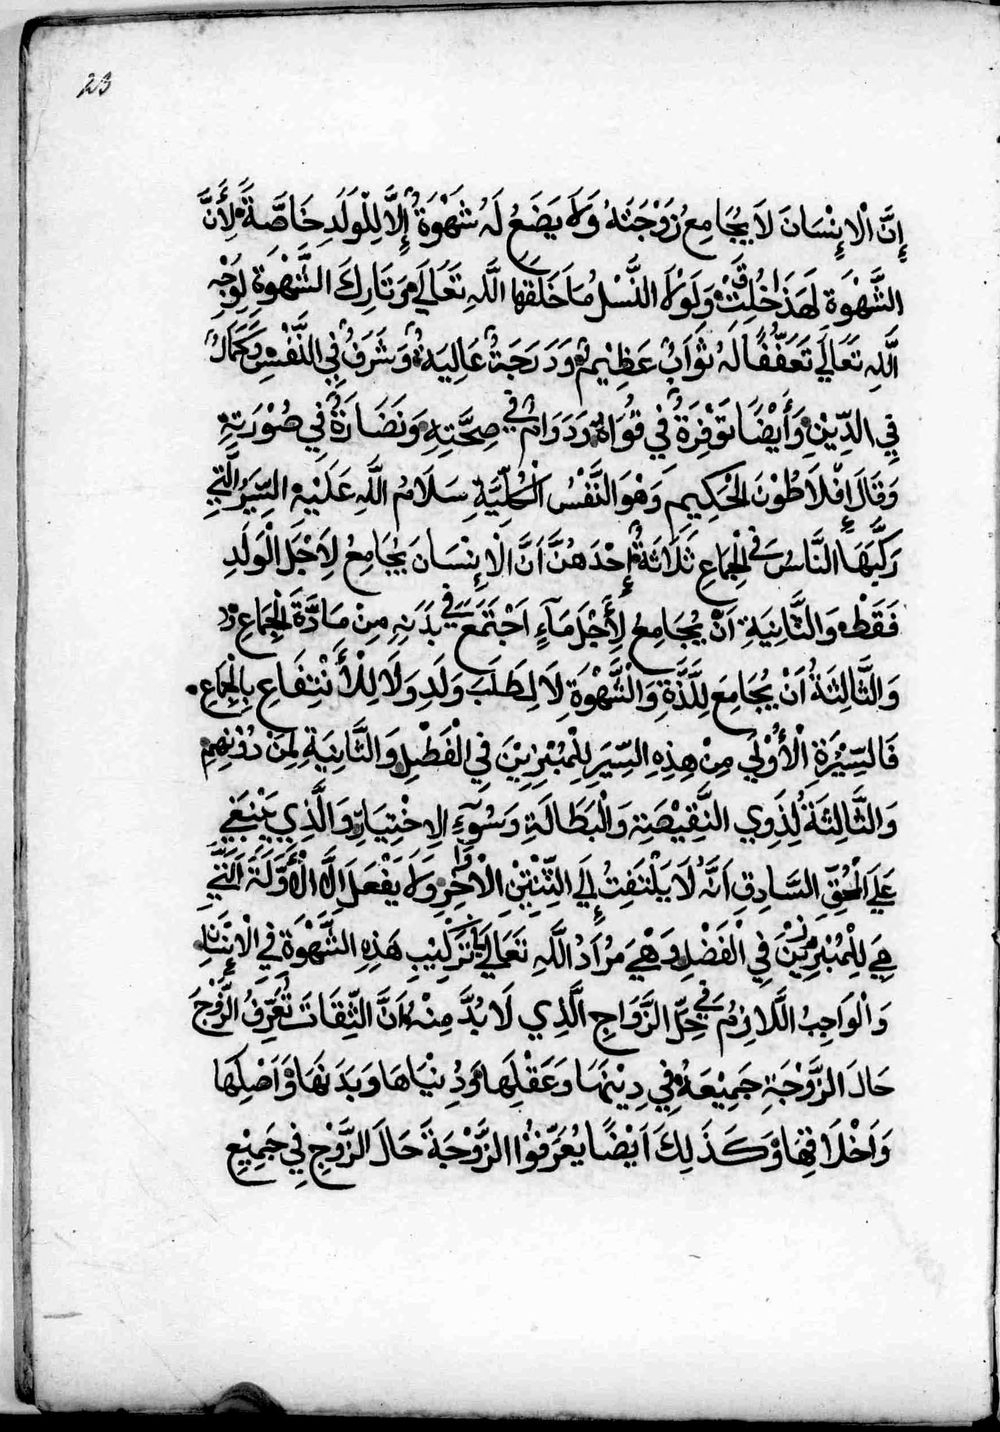 23
إِنَّ الْاِنْسَانَ لَا يُجَامِعُ زَوْجَتَهُ وَلَا يَضَعُ لَهُ شَهْوَةً إِلَّا لِلْوَلَدِ خَاصَّةً لِأَنَّ
الشَّهْوَةَ لِهَذَا خُلِقَتْ وَلَوْلَا النَّسْلُ مَا خَلَقَهَا اللَّهِ تَعَالَى مَ تَارِكَ الشَّهْوَةِ لِوَجْهِ
اللَّهِ تَعَالَى تَعَفُّفًا لَهُ ثَوَابٌ عَظِيْمٌ وَدَرَجَةٌ عَالِيَةٌ وَشَرَفٌ فِي النَّفْسِ وَكَمَالٌ
فِي الدِّيْنِ وَأَيْضًا تَوْفِرَةٌ فِي قُوَاهُ وَدَوَامٌ فِي صِحَّتِهِ وَنَضَارَةٌ فِي صُوْرَتِهِ
وَقَالَ إِفْلَاطُوْنَ الْحَكِيمِ وَهْوَ النَّفْسُ الْكُلِّيَّةِ سَلَامُ اللَّهِ عَلَيْهِ السِّيَرُ الَّتِي
رَكَّبَهَا النَّاسُ فِي الْجِمَاعِ ثَلَاثَةٌ إِحْدَهُنَّ اَنَّ الْاِنْسَانَ يُجَامِعُ لِاَجْلِ الْوَلَدِ
فَقَطْ وَالثَّانِيَةِ اَنْ يُجَامِعُ لِأَجْلِ مَآءٍ اَجْتَمَعَ فِي بَدَنِهِ مِنْ مَادَّةِ الْجِمَاعِ
وَالثَّالِثَةُ اَنْ يُجَامِعَ لِلَّذَّةِ وَالشَّهْوَةِ لَا لِطَلَبِ وَلَدٍ وَلَا لِلْأَنْتِفَاعِ بِالْجِمَاعِ
فَالسِّيْرَةِ الْأُوْلَى مِنْ هِذِهِ السِّيَرِ لِلْمُبْرِزِيْنَ فِي الْفَضْلِ وَالثَّانِيَةِ لِمَنْ دُوْنِهِمْ
وَالثَّالِثَةُ لِذَوِي النَّقِيْصَةِ وَالْبَطَالَةِ وَسُوْءِ الِاخْتِيَارِ وَالَّذِي يَنْبَغِي
عَلَى الْمُحِقِّ السَّادِقِ اَنَّهُ لَا يَلْتَفِتُ إِلَى الثِّنْتِيْنِ الْاَوَاخِرِ وَلَا يَفْعَلَ إِلَّا الْأَوَّلَةَ الَّتِي
هِيَ لِلْمُبْرِزِيْنَ فِي الْفَضْلِ وَهْيَ مُرَادُ اللَّهِ تَعَالَى فِي تَرْكِيْبِ هَذِهِ الشَّهْوَةِ فِي الْإِنْسَانِ
وَالْوَاجِبُ اللَّازِمُ فِي حِلِّ الزَّوَاجِ الَّذِي لَا بُدَّ مِنْهُ اَنَّ الثِّقَاتَ تُعَرِّفُ الزَّوْجَ
حَالَ الزَّوْجَةِ جَمِيْعَهُ فِي دِيْنِهَا وَعَقْلِهَا وَدُنْيَاهَا وَبَدَنَهَا وَاَصْلِهَا
وَاَخْلَاقِهَا وَكَذَلِكَ اَيْضًا يُعَرِّفُوْا الزَّوْجَةَ حَالَ الزَّوْجِ فِي جَمِيْعِ